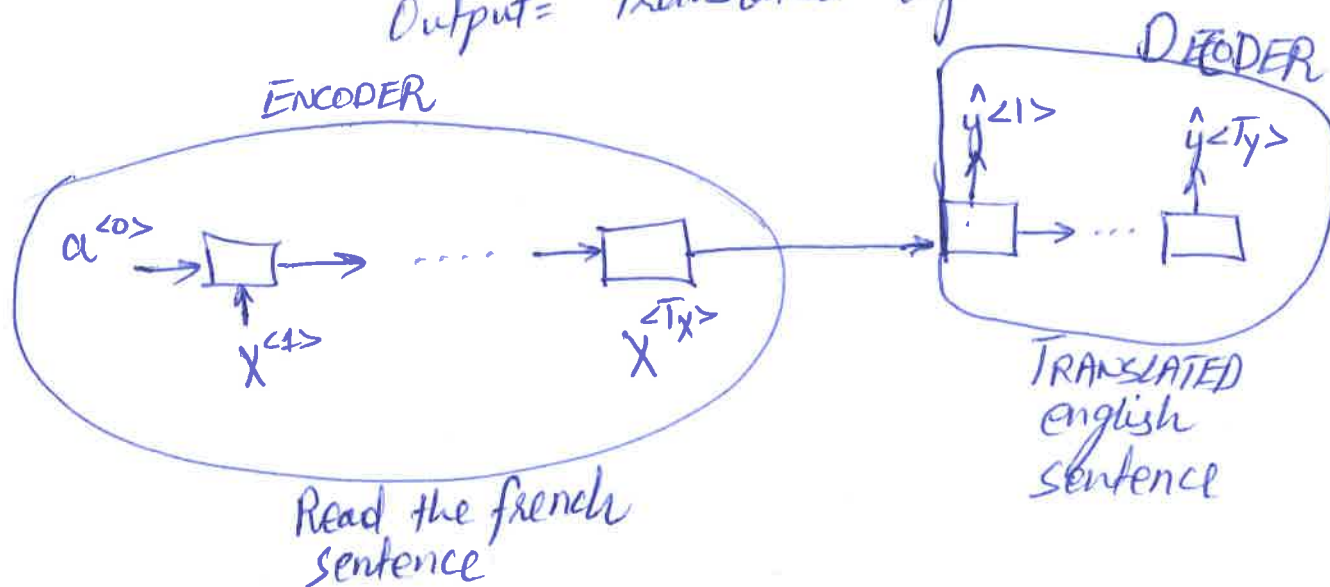 Output=
DECODER
ENCODER
ŷ<1>
ŷ<Ty>
a<0>
....
....
X<1>
X<Tx>
TRANSLATED
english
sentence
Read the french
sentence